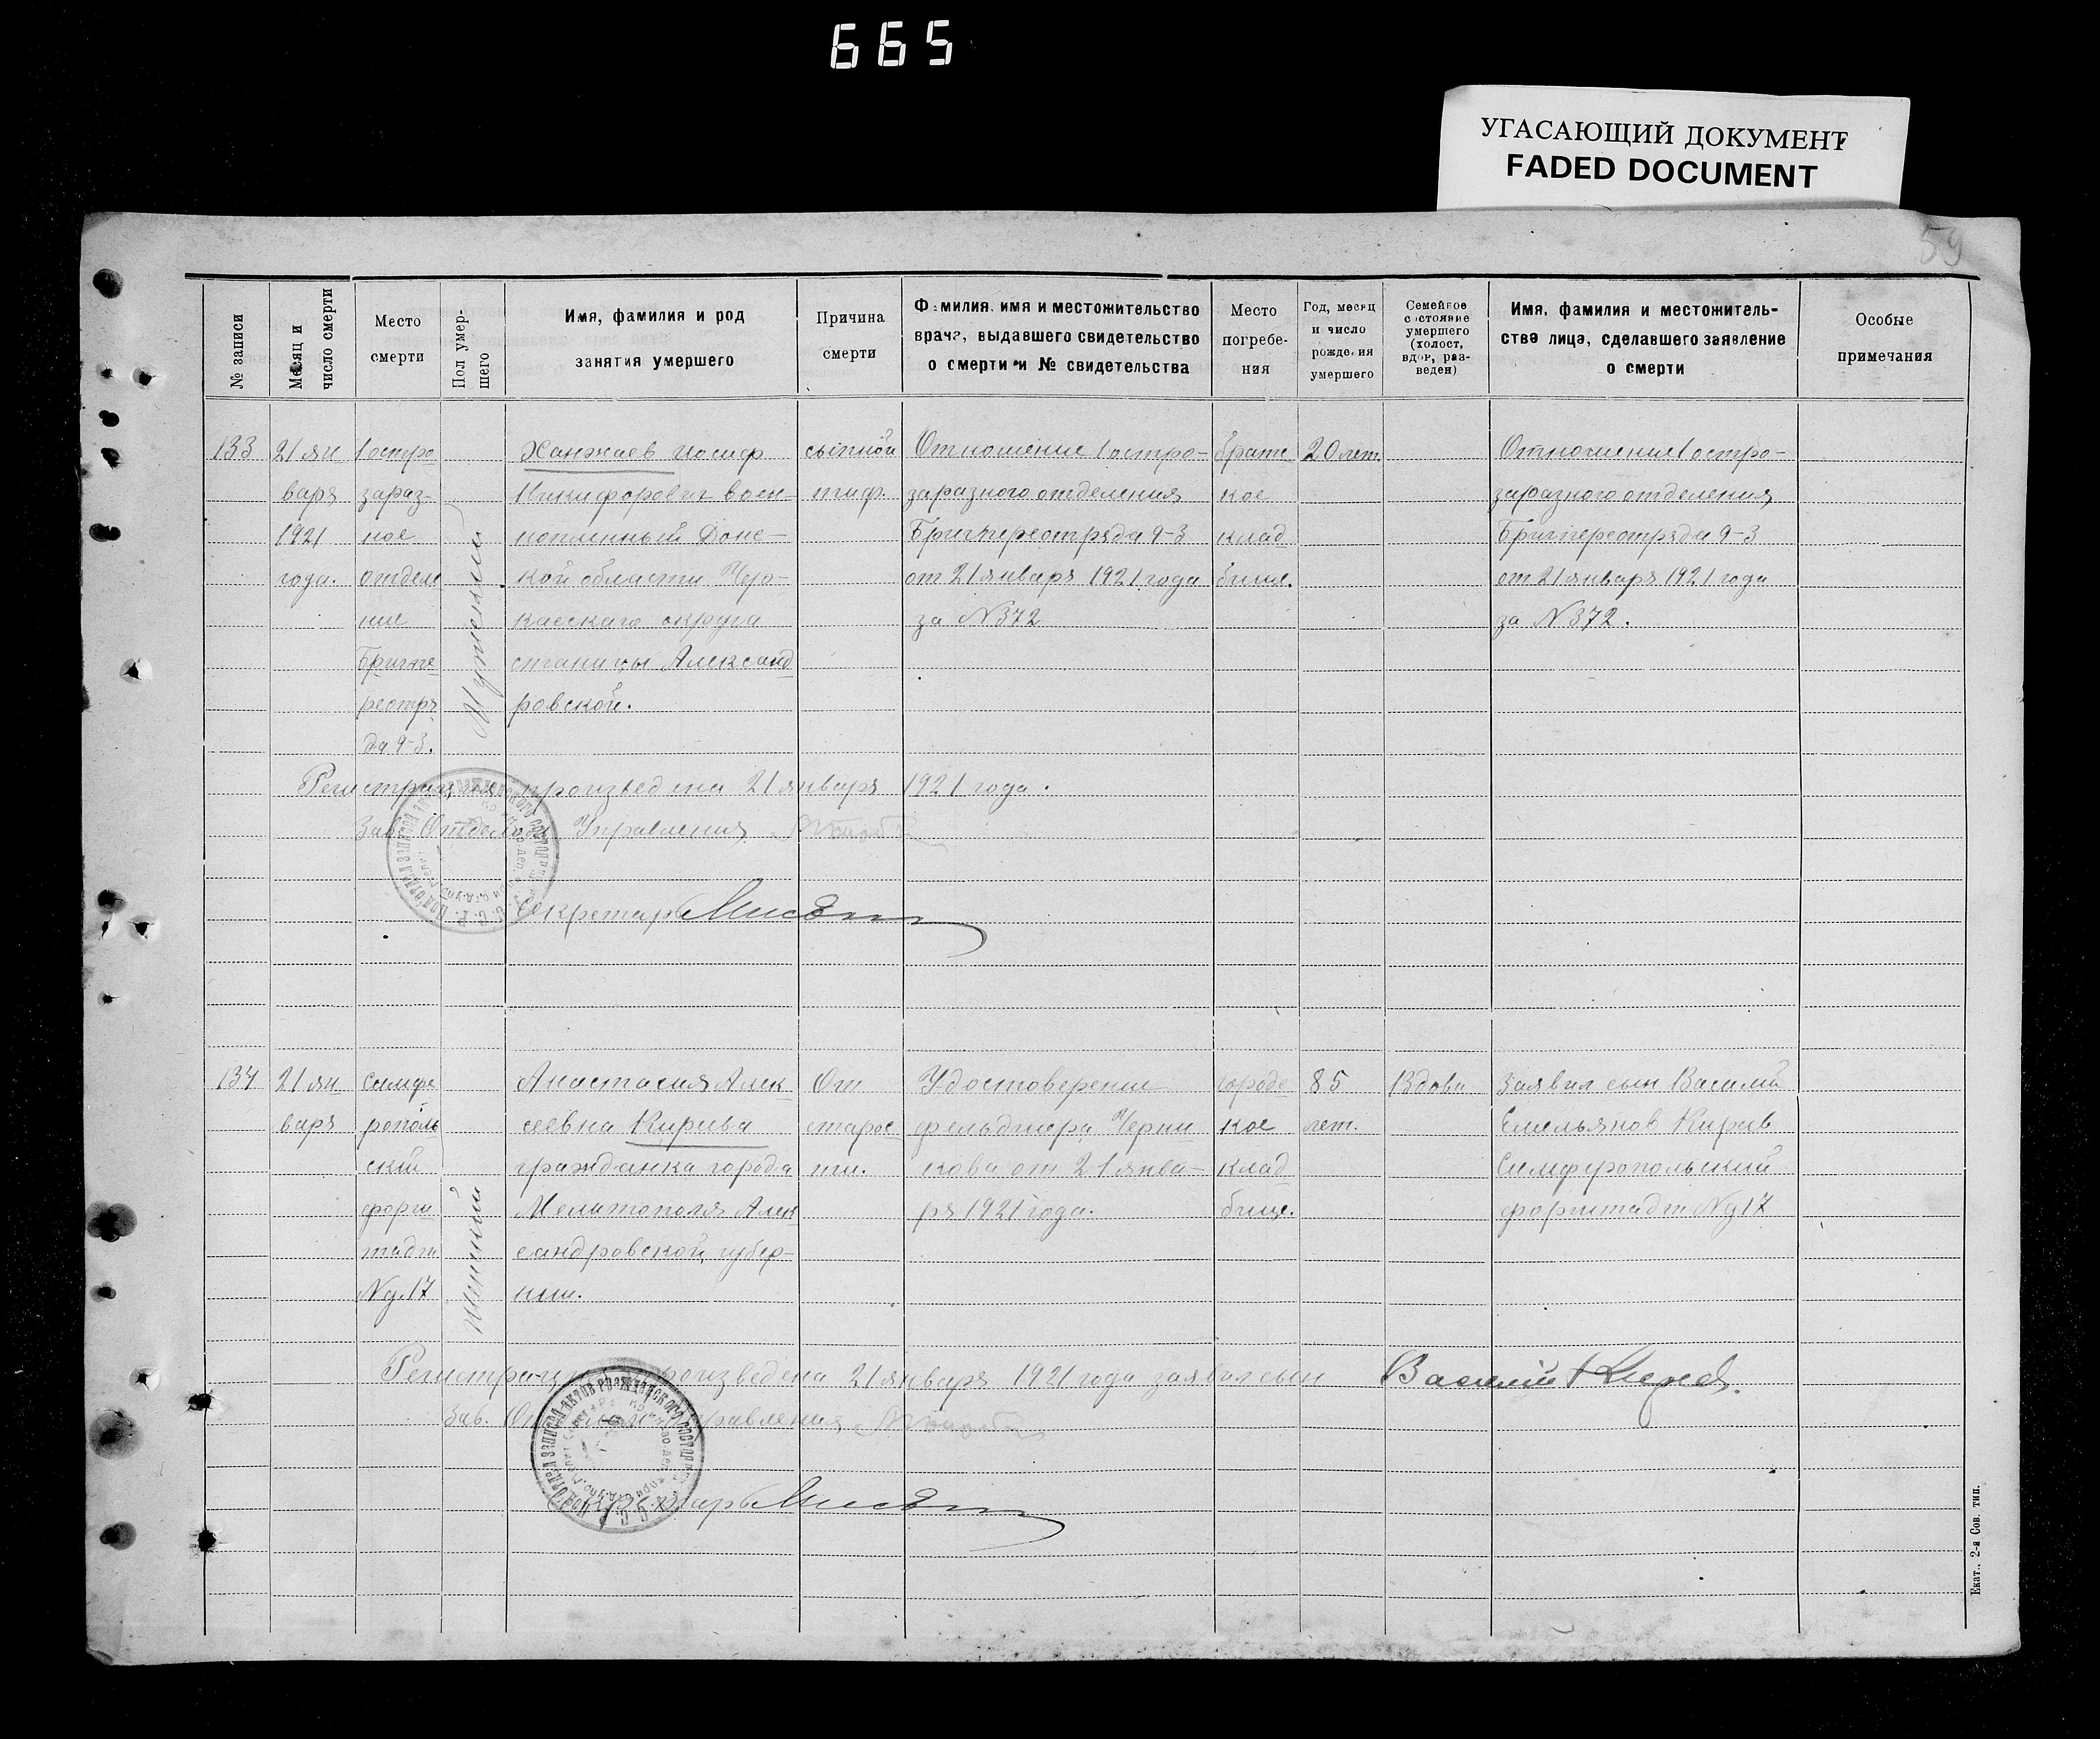 665
УГАСАЮЩИЙ ДОКУМЕНТ
FADED DOCUMENT
59
№ записи
Месяц и число смерти
Место смерти
Пол умер-шего
Имя, фамилия и род занятия умершего
Причина смерти
Фамилия, имя и местожительство врача, выдавшего свидетельство о смерти и № свидетельства
Место погребе-ния
Год, месяц и число рождения умершего
Семейное состояние умершего (холост, вдов, раз-веден)
Имя, фамилия и местожитель-ство лица, сделавшего заявление о смерти
Особые примечания
133
21 ян
варя
1921
года.
1 остро
зараз-
ное
отделе
ние
Бригпе
реотря
да 9-3.
Мужской
Ханжаев Иосиф
Никифорович воен-
нопленный Донс-
кой области Чер-
касского округа
станицы Александ
ровской.
сыпной
тиф.
Отношение 1 остро-
заразного отделения
Бригпереотряда 9-3
от 21 января 1921 года
за №372
братс
кое
клад
бище.
20 лет.
Отношение 1 остро-
заразного отделения
Бригпереотряда 9-3
от 21 января 1921 года
за №372.
Регистрация произведена 21 января 1921 года.
Зав. Отделом Управления
Секретарь
134
21 ян
варя
Симфе
рополь
ский
форш
тадт
№д. 17
Женский
Анастасия Алек
сеевна Кирева
гражданка города
Мелитополя Алек
сандровской губер-
нии.
От
старос
ти.
Удостоверение
фельдшера Черни
кова от 21 янва-
ря 1921 года.
городс
кое
клад
бище.
85
лет.
Вдова
Заявил сын Василий
Емельянов Кирев
Симферопольский
форштадт №д 17
Регистрация произведена 21 января 1921 года заявил сын Василий Кирев.
Зав. Отделом Управления
Секретарь
Екат. 2-я Сов. тип.